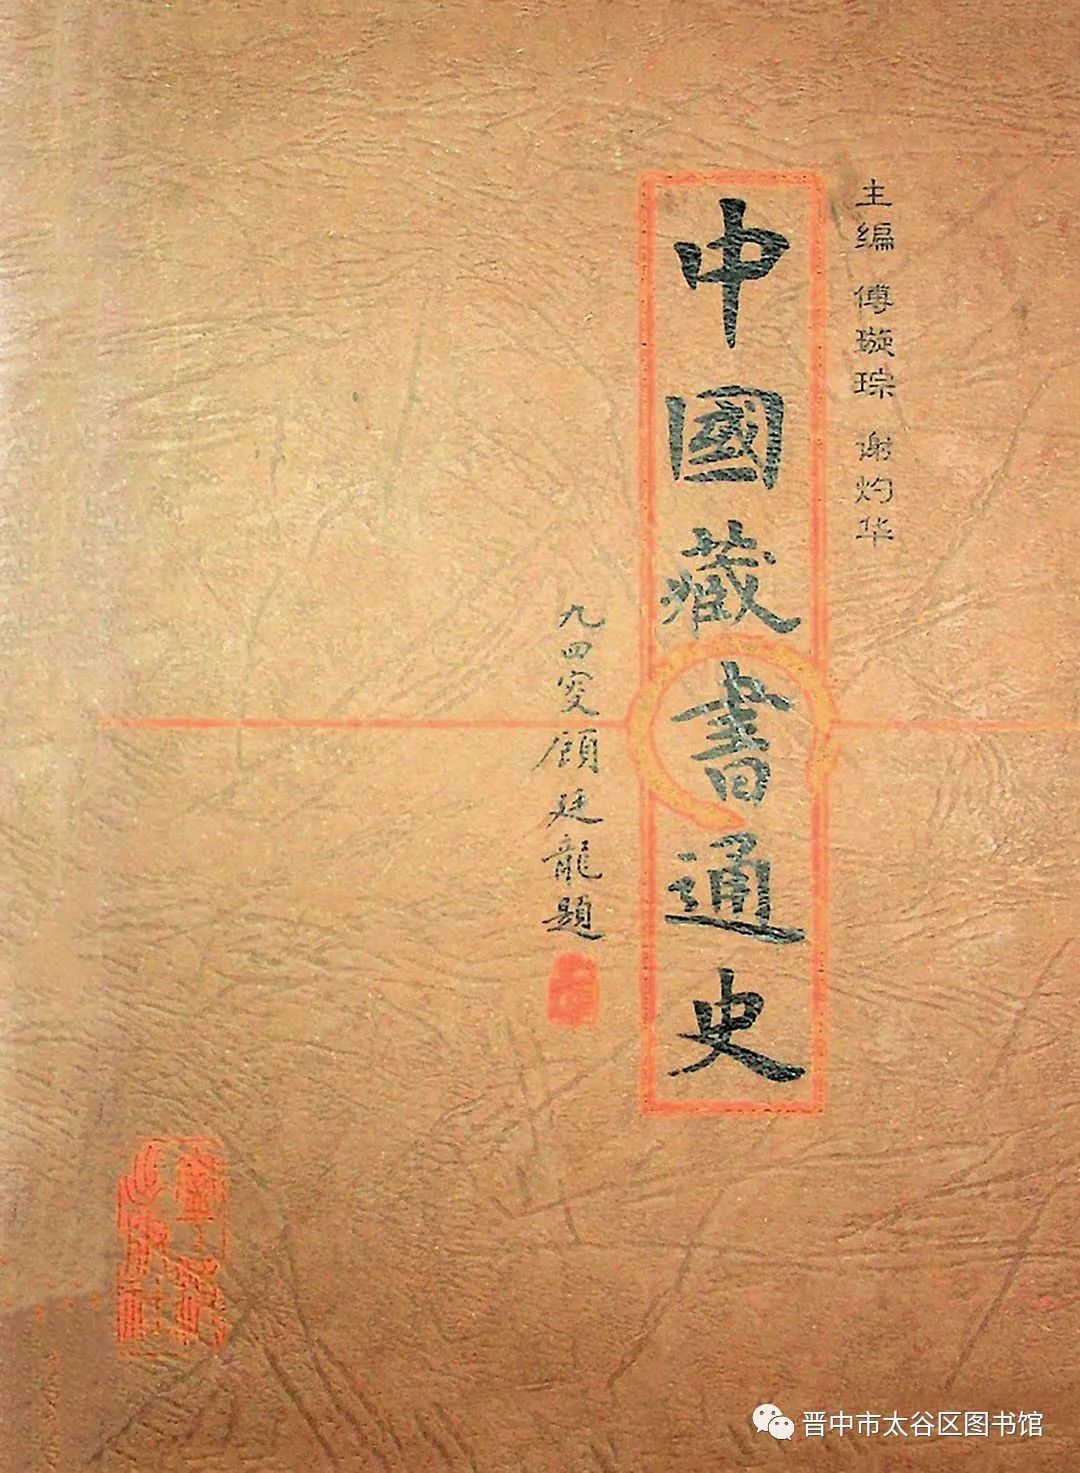 主编 傅璇琮 谢灼华
中國藏書通史
九四叟顾廷龍題
晋中市太谷区图书馆